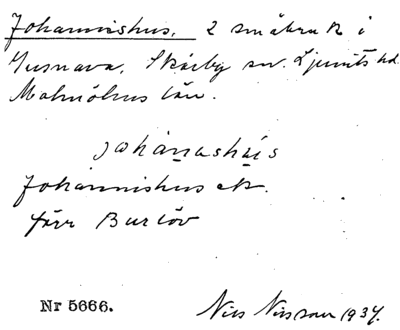 Johannishus, 2 småbruk i
Gusnava, Skårby sn. Ljunits hd.
Malmöhus län.
johanashus
Johannishus ek.
förr Burlöv
Nr 5666.
Nils Nilsson 1937.